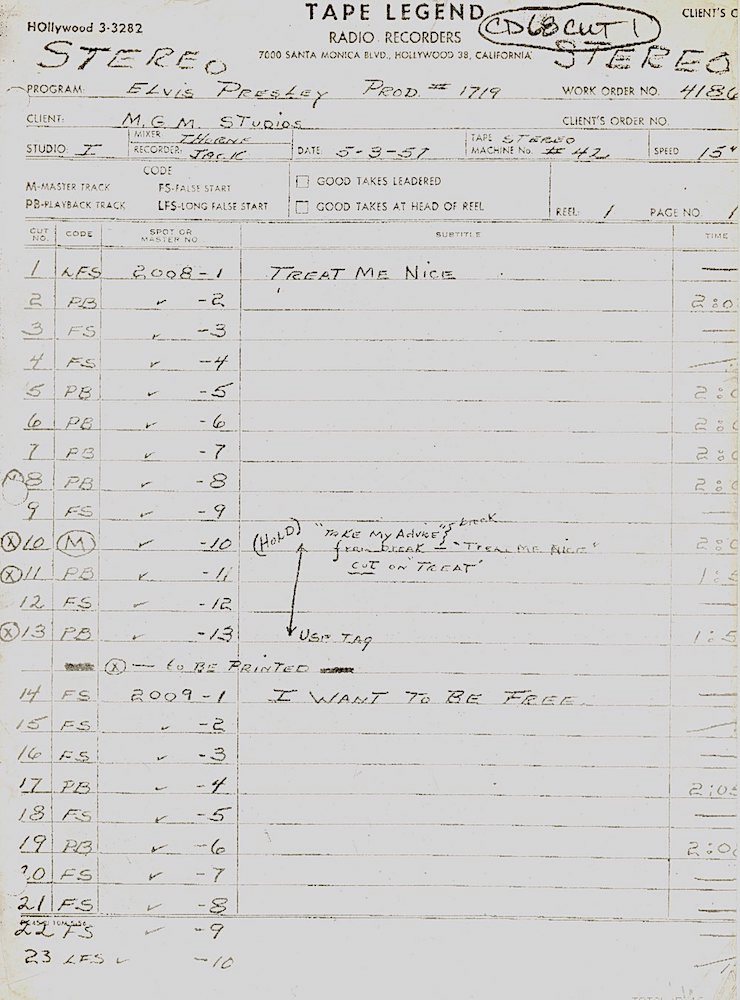 TAPE LEGEND
CD 68 CUT 1
CLIENT'S
HOllywood 3-3282
RADIO RECORDERS
STEREO
7000 SANTA MONICA BLVD., HOLLYWOOD 38, CALIFORNIA
STEREO
PROGRAM: ELVIS PRESLEY PROD. # 1719 WORK ORDER NO. 4186
CLIENT: M.G.M. STUDIOS CLIENT'S ORDER NO.
STUDIO: I MIXER THORNE RECORDER: JACK DATE: 5-3-57 TAPE STEREO MACHINE No. # 42 SPEED 15"
CODE
M-MASTER TRACK FS-FALSE START GOOD TAKES LEADERED
PB-PLAYBACK TRACK LFS-LONG FALSE START GOOD TAKES AT HEAD OF REEL REEL: 1 PAGE NO. 1
CUT NO. CODE SPOT OR MASTER NO. SUBTITLE TIME
1 LFS 2008-1 TREAT ME NICE —
2 PB ✓ -2 2:0
3 FS ✓ -3 —
4 FS ✓ -4 —
5 PB ✓ -5 2:0
6 PB ✓ -6 2:0
7 PB ✓ -7 2:0
8 PB ✓ -8 2:0
9 FS ✓ -9 —
(X) 10 (M) ✓ -10 (HOLD) "TAKE MY ADVICE" break 2:0
from break - "TREAT ME NICE"
CUT ON "TREAT"
(X) 11 PB ✓ -11 1:5
12 FS ✓ -12 —
(X) 13 PB ✓ -13 USE TAG 1:5
(X) — to BE PRINTED
14 FS 2009-1 I WANT TO BE FREE. —
15 FS ✓ -2
16 FS ✓ -3 —
17 PB ✓ -4 2:05
18 FS ✓ -5 —
19 PB ✓ -6 2:0
20 FS ✓ -7 —
21 FS ✓ -8 —
22 FS ✓ -9 —
23 LFS ✓ -10